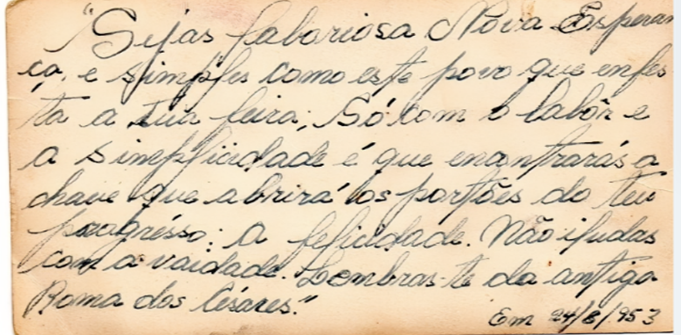 "Sejas laboriosa Nova Esperan
ça, e simples como este povo que enfes
ta a tua feira; Só com o labôr e
a simplicidade é que encontrarás a
chave que abrirá os portões do teu
progrésso: a felicidade. Não iludas
com a vaidade. Lembras-te da antiga
Roma dos Césares."
Em 24/8/953